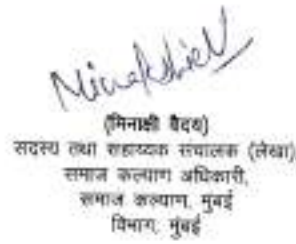 MinakshiV
(मिनाक्षी वैदय)
सदस्य तथा सहाय्यक संचालक (लेखा)
समाज कल्याण अधिकारी,
समाज कल्याण, मुंबई
विभाग, मुंबई